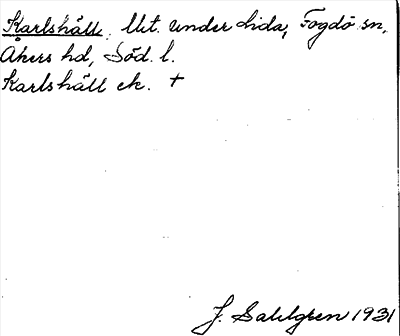 Karlshäll. Utt. under Lida, Fogdö sn,
Åkers hd, Söd. l.
Karlshäll ek. +
J. Sahlgren 1931